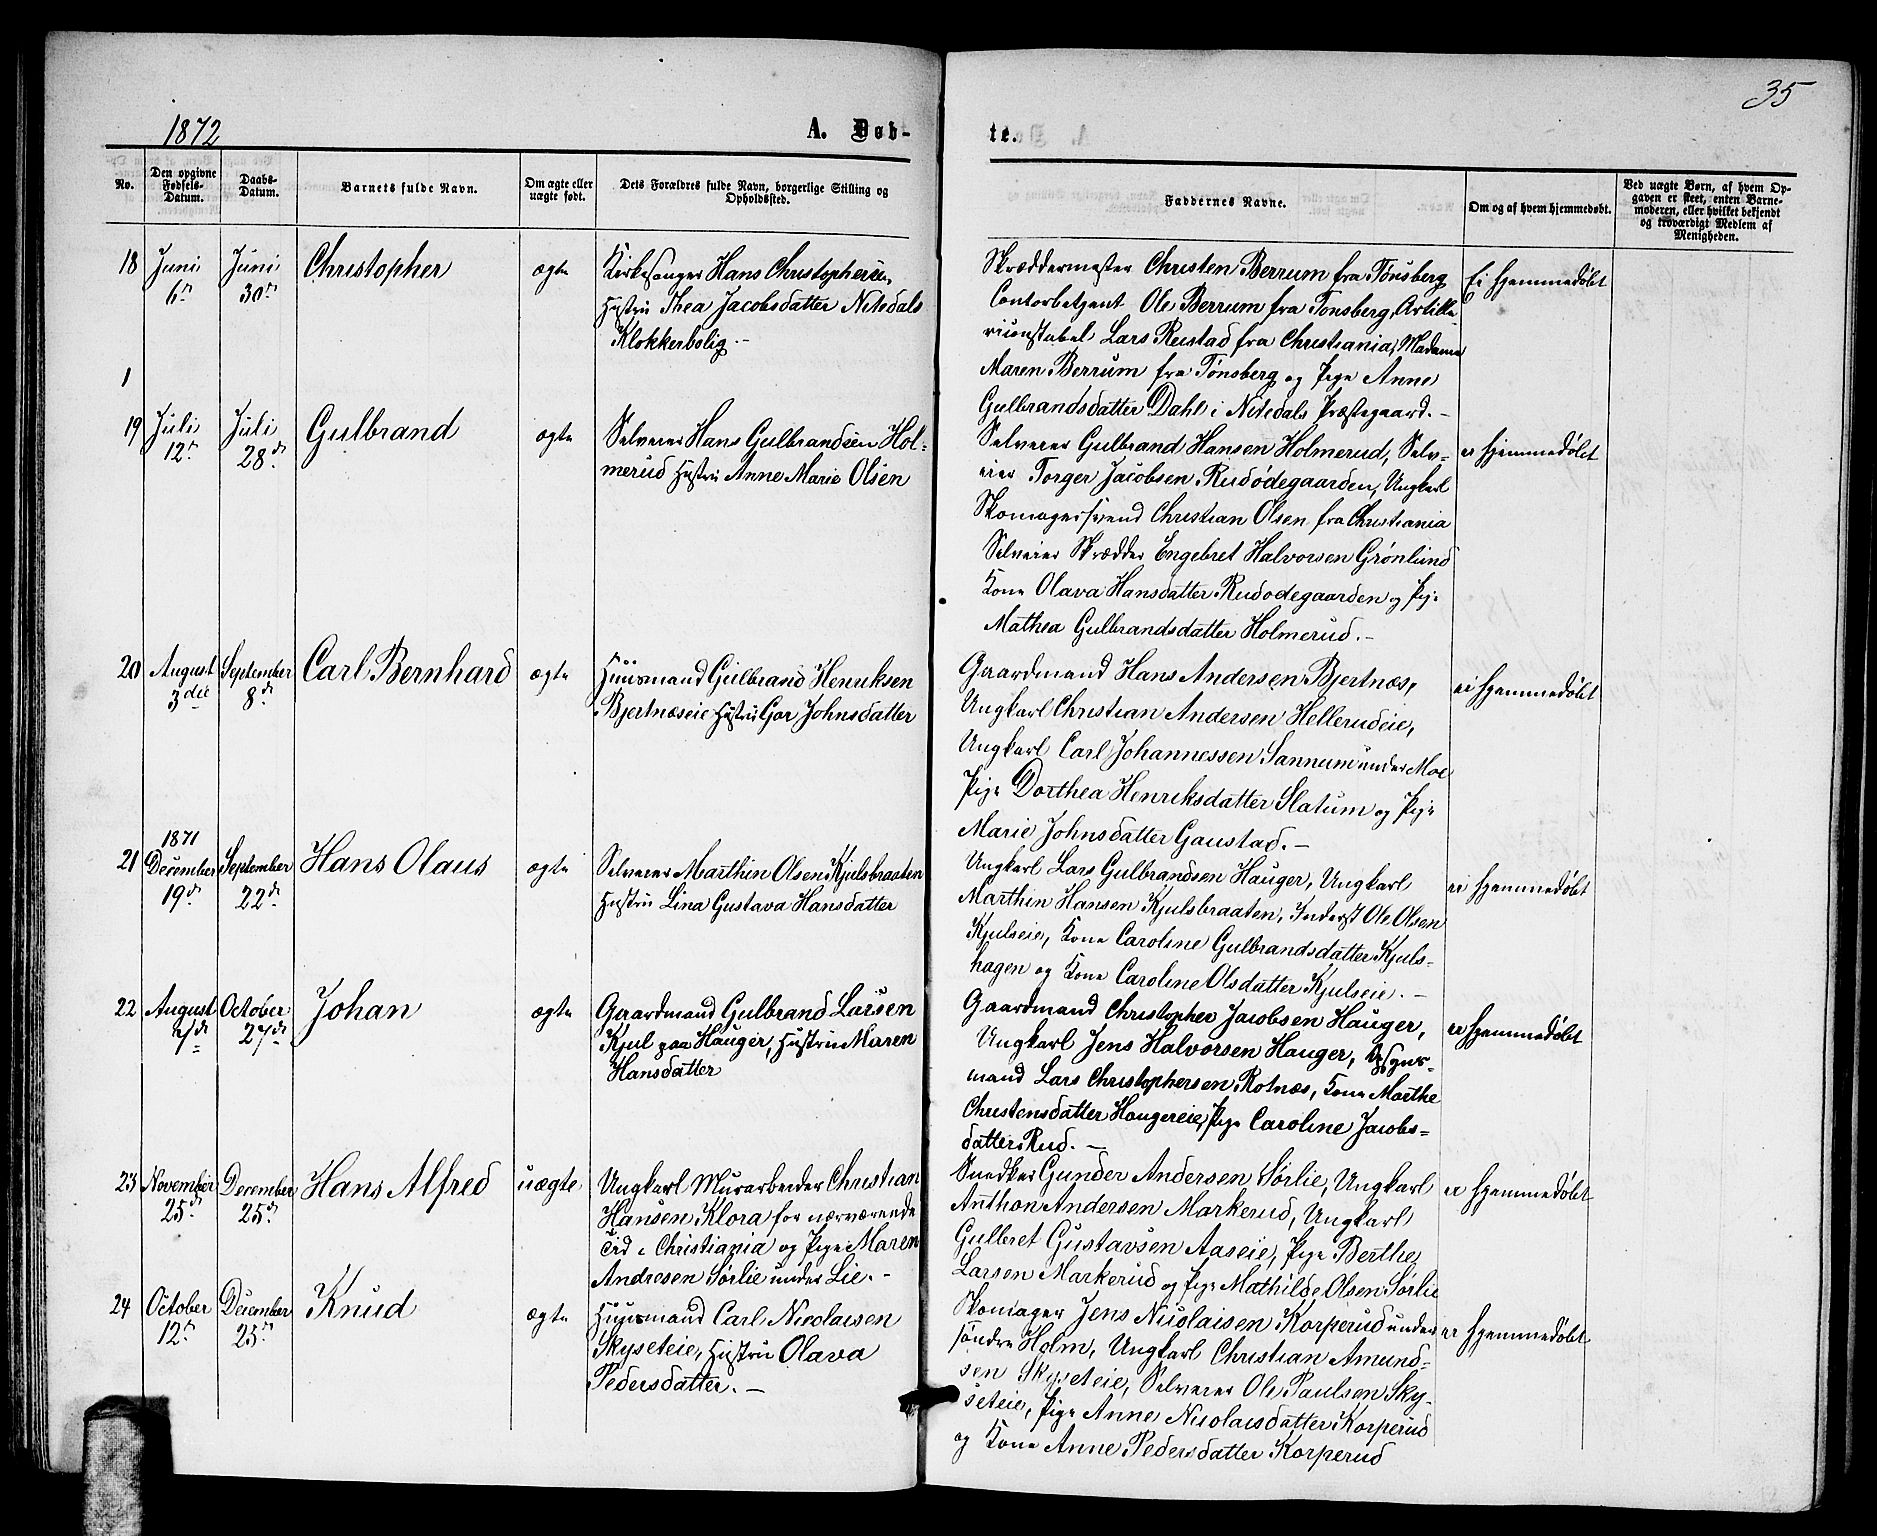 35
1872
A. Døb-
te.
No.
Den opgivne Fødsels-Datum.
Daabs-Datum.
Barnets fulde Navn.
Om ægte eller uægte født.
Dets Forældres fulde Navn, borgerlige Stilling og Opholdssted.
Faddernes Navne.
Om og af hvem hjemmedøbt.
Ved uægte Børn, af hvem Opgaven er skeet, enten Barnemoderen, eller hvilket bekjendt og troværdigt Medlem af Menigheden.
18 Juni 6te Juni 30te Christopher ægte
Kirkesanger Hans Christophersen,
Hustru Thea Jacobsdatter Nitedals
Klokkerbolig.-
Skræddermester Christen Berrum fra Tønsberg
Contorbetjent Ole Berrum fra Tonsberg, Artille-
riconstabel Lars Reistad fra Christiania, Madame
Maren Berrum fra Tønsberg og Pige Anne
Gulbrandsdatter Dahl i Nitedals Præstegaard.-
Ei hjemmedøbt
1
19 Juli 12te Juli 28de Gulbrand ægte
Selveier Hans Gulbrandsen Hol-
merud Hustru Anne Marie Olsen
Selveier Gulbrand Hansen Holmerud, Selv-
eier Torger Jacobsen Rudødegaarden, Ungkarl
Skomagersvend Christian Olsen fra Christiania
Selveier Skrædder Engebret Halvorsen Grønlund
Kone Olava Hansdatter Rudodegaarden og Pige
Mathea Gulbrandsdatter Holmerud.-
ei hjemmedøbt
20 August 3die September 8de Carl Bernhard ægte
Huusmand Gulbrand Henriksen
Bjertnæseie Hustru Gor Johnsdatter
Gaardmand Hans Andersen Bjertnæs,
Ungkarl Christian Andersen Hellerudeie,
Ungkarl Carl Johannessen Sannum under Moe
Pige Dorthea Henriksdatter Slatum og Pige
Marie Johnsdatter Gaustad.-
ei hjemmedøbt
21 1871 December 19de September 22de Hans Olaus ægte
Selveier Marthin Olsen Kjulsbraaten
Hustru Lina Gustava Hansdatter
Ungkarl Lars Gulbrandsen Hauger, Ungkarl
Marthin Hansen Kjulsbraaten, Inderst Ole Olsen
Kjulseie, Kone Caroline Gulbrandsdatter Kjuls-
hagen og Kone Caroline Olsdatter Kjulseie.-
ei hjemmedøbt
22 August 7de October 27de Johan ægte
Gaardmand Gulbrand Larsen
Kjul paa Hauger, Hustru Maren
Hansdatter
Gaardmand Christopher Jacobsen Hauger,
Ungkarl Jens Halvorsen Hauger, Opsyns-
mand Lars Christophersen Rotnæs, Kone Marthe
Christensdatter Haugereie, Pige Caroline Jacobs-
datter Rud.-
ei hjemmedøbt
23 November 25de December 25de Hans Alfred uægte
Ungkarl Murarbeider Christian
Hansen Klora for nærværende
Tid i Christiania og Pige Maren
Andresen Sørlie under Lie.-
Snedker Gunder Andersen Sørlie, Ungkarl
Anthon Andersen Markerud, Ungkarl
Gulleret Gustavsen Aaseie, Pige Berthe
Larsen Markerud og Pige Mathilde Olsen Sørlie
ei hjemmedøbt
24 October 12te December 25de Knud ægte
Huusmand Carl Nicolaisen
Skyseteie, Hustru Olava
Pedersdatter.-
Skomager Jens Nicolaisen Korperud under
søndre Holm, Ungkarl Christian Amund-
sen Skyseteie, Selveier Ole Paulsen Sky-
seteie, Pige Anne Nicolaisdatter Korperud
og Kone Anne Pedersdatter Korperud
ei hjemmedøbt